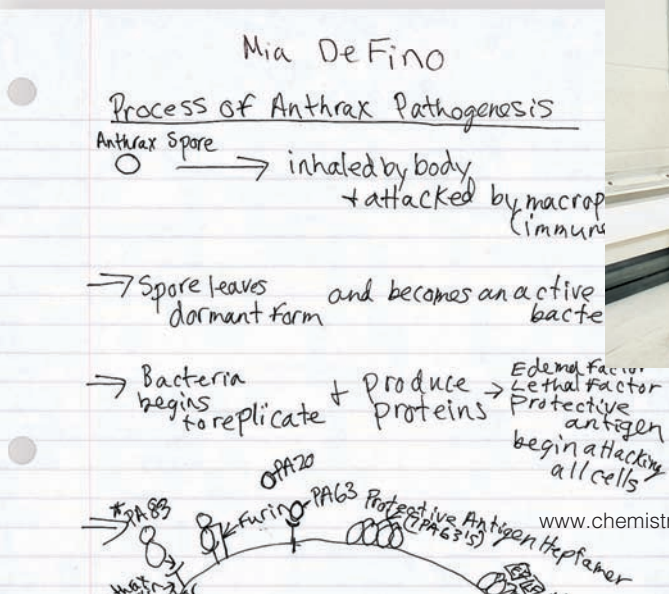 Mia DeFino
Process of Anthrax Pathogenesis
Anthrax Spore
inhaled by body
+ attacked by macrop
(immun
Spore leaves
dormant form
and becomes an active
bacte
Bacteria
begins
to replicate
+ produce
proteins
Edema Factor
Lethal Factor
Protective
antigen
begin attacking
all cells
PA20
*PA 83
Furin
PA63
Protective Antigen Heptamer
(7PA63's)
www.chemistr